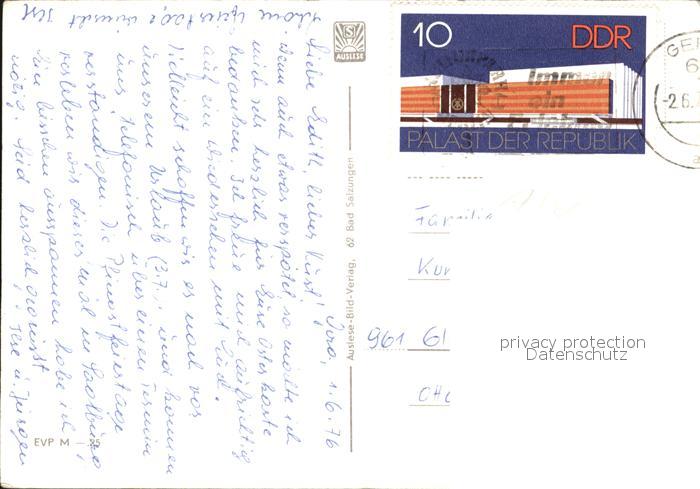 Gera, 1.6.76
Liebe Edith, lieber Kurt!
Wenn auch etwas verspätet so möchte ich
mich sehr herzlich für Eure Osterkarte
bedanken. Ich freue mich aufrichtig
auf ein Wiedersehen mit Euch.
Vielleicht schaffen wir es noch vor
unserem Urlaub (3.7.) und können
uns telefonisch über einen Termin
verständigen. Die Pfingstfeiertage
verleben wir dieses mal in Saalburg
Ein bisschen ausspannen habe ich
nötig. Seid herzlich gegrüsst
u. Jürgen
schöne Feiertage wünscht
AUSLESE
Auslese-Bild-Verlag, 62 Bad Salzungen
EVP M —.25
10 DDR
PALAST DER REPUBLIK
Immer
ein
GE
6
-2.6.7
a
Familie
Kur
961 Gl
Otto
privacy protection
Datenschutz